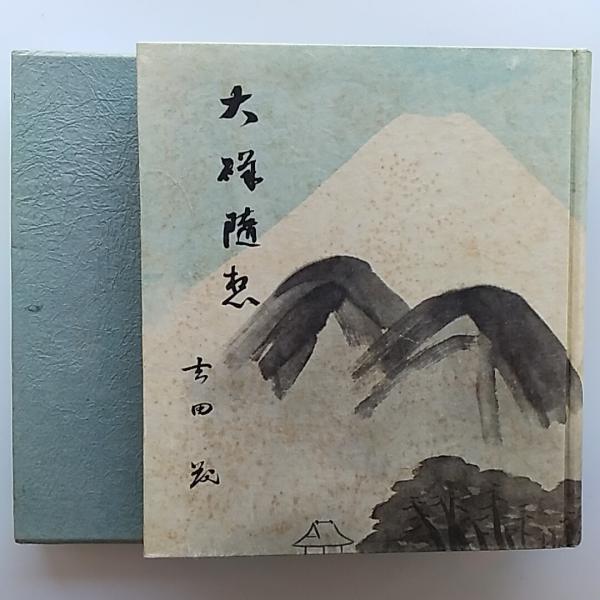 大磯随想
吉田茂